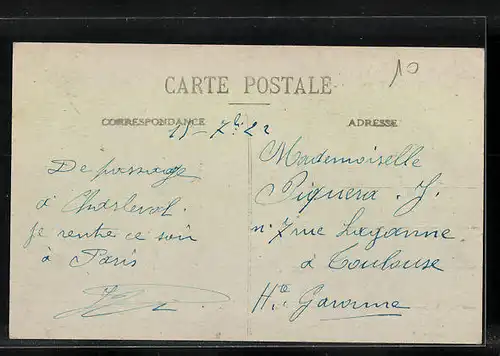 10
CARTE POSTALE
CORRESPONDANCE
ADRESSE
15 - 7bre 22
De passage
à Charleval.
je rentre ce soir
à Paris
Mademoiselle
Piquera. J.
n. 7 rue Laganne
à Toulouse
Hte Garonne